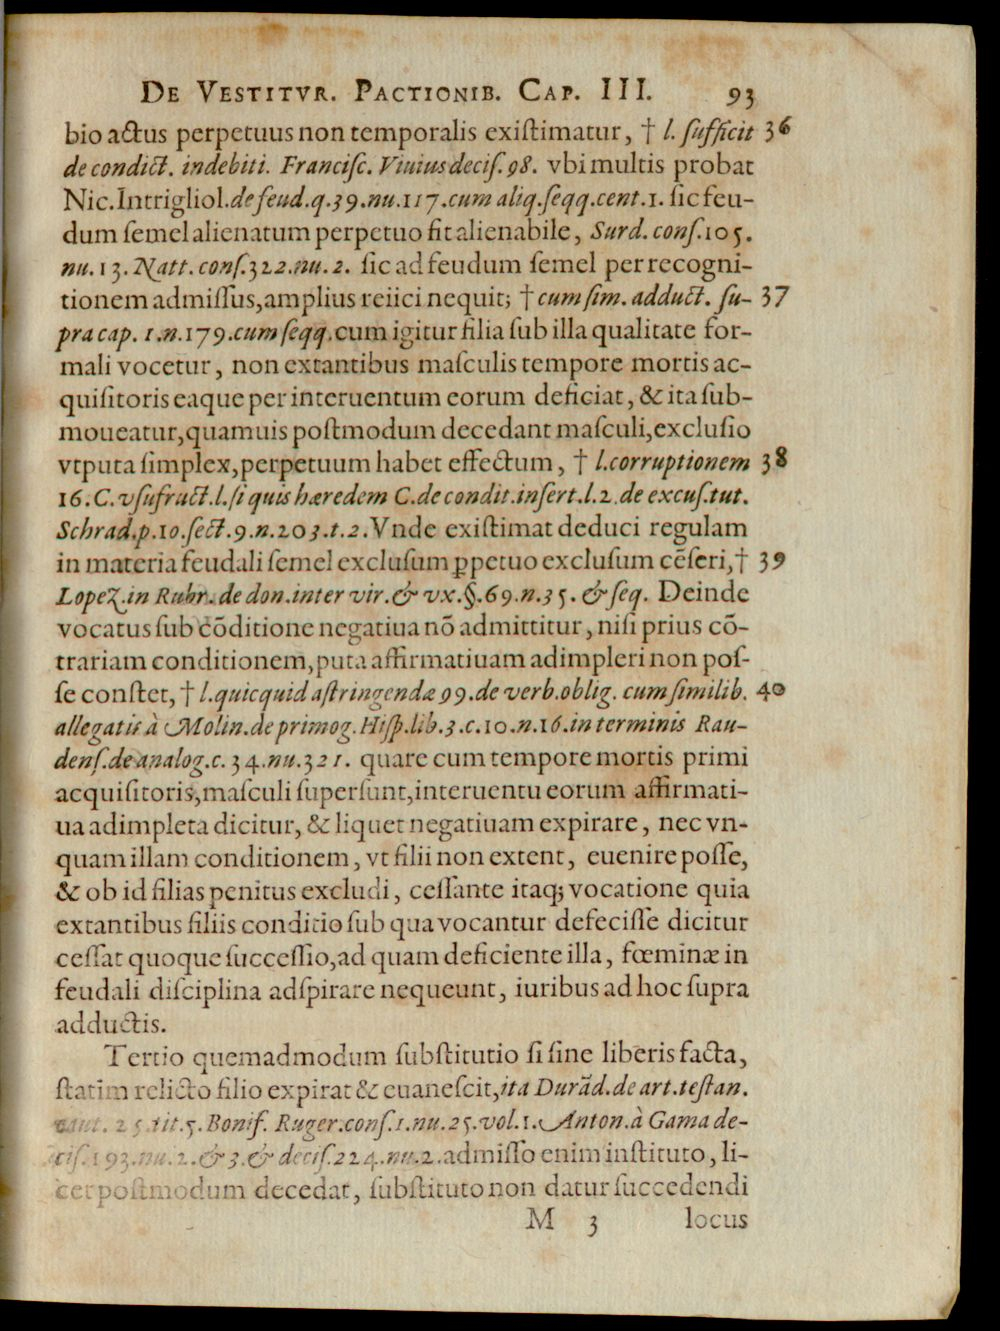 DE VESTITVR. PACTIONIB. CAP. III. 93
bio actus perpetuus non temporalis exiſtimatur, † l. ſufficit 36
de condict. indebiti. Franciſc. Viuius deciſ. 98. vbi multis probat
Nic. Intrigliol. de feud. q. 39. nu. 117. cum aliq. ſeqq. cent. 1. ſic feu-
dum ſemel alienatum perpetuo fit alienabile, Surd. conſ. 105.
nu. 13. Natt. conſ. 322. nu. 2. ſic ad feudum ſemel per recogni-
tionem admiſſus, amplius reiici nequit; † cum ſim. adduct. ſu- 37
pra cap. 1. n. 179. cum ſeqq. cum igitur filia ſub illa qualitate for-
mali vocetur, non extantibus maſculis tempore mortis ac-
quiſitoris eaque per interuentum eorum deficiat, & ita ſub-
moueatur, quamuis poſtmodum decedant maſculi, excluſio
vtputa ſimplex, perpetuum habet effectum, † l. corruptionem 38
16. C. vſufruct. l. ſi quis hæredem C. de condit. inſert. l. 2. de excuſ. tut.
Schrad. p. 10. ſect. 9. n. 203. t. 2. Vnde exiſtimat deduci regulam
in materia feudali ſemel excluſum ꝑpetuo excluſum cēſeri, † 39
Lopez. in Rubr. de don. inter vir. & vx. §. 69. n. 35. & ſeq. Deinde
vocatus ſub cōditione negatiua nō admittitur, niſi prius cō-
trariam conditionem, puta affirmatiuam adimpleri non poſ-
ſe conſtet, † l. quicquid aſtringendæ 99. de verb. oblig. cum ſimilib. 40
allegatis à Molin. de primog. Hiſp. lib. 3. c. 10. n. 16. in terminis Rau-
denſ. de analog. c. 34. nu. 321. quare cum tempore mortis primi
acquiſitoris, maſculi ſuperſunt, interuentu eorum affirmati-
ua adimpleta dicitur, & liquet negatiuam expirare, nec vn-
quam illam conditionem, vt filii non extent, euenire poſſe,
& ob id filias penitus excludi, ceſſante itaq; vocatione quia
extantibus filiis conditio ſub qua vocantur defeciſſe dicitur
ceſſat quoque ſucceſſio, ad quam deficiente illa, fœminæ in
feudali diſciplina adſpirare nequeunt, iuribus ad hoc ſupra
adductis.
Tertio quemadmodum ſubſtitutio ſi ſine liberis facta,
ſtatim relicto filio expirat & euaneſcit, ita Durād. de art. teſtan.
caut. 25. tit. 5. Boniſ. Ruger. conſ. 1. nu. 25. vol. 1. Anton. à Gama de-
ciſ. 193. nu. 2. & 3. & deciſ. 224. nu. 2. admiſſo enim inſtituto, li-
cet poſtmodum decedat, ſubſtituto non datur ſuccedendi
M 3 locus